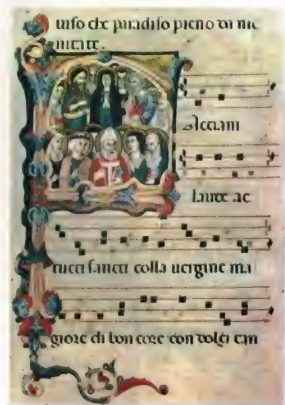 uiso de paradiso pieno di ni
nitate.
acciam
laude ac
tucti sancti colla uergine ma
giore di bon core con dolçi can